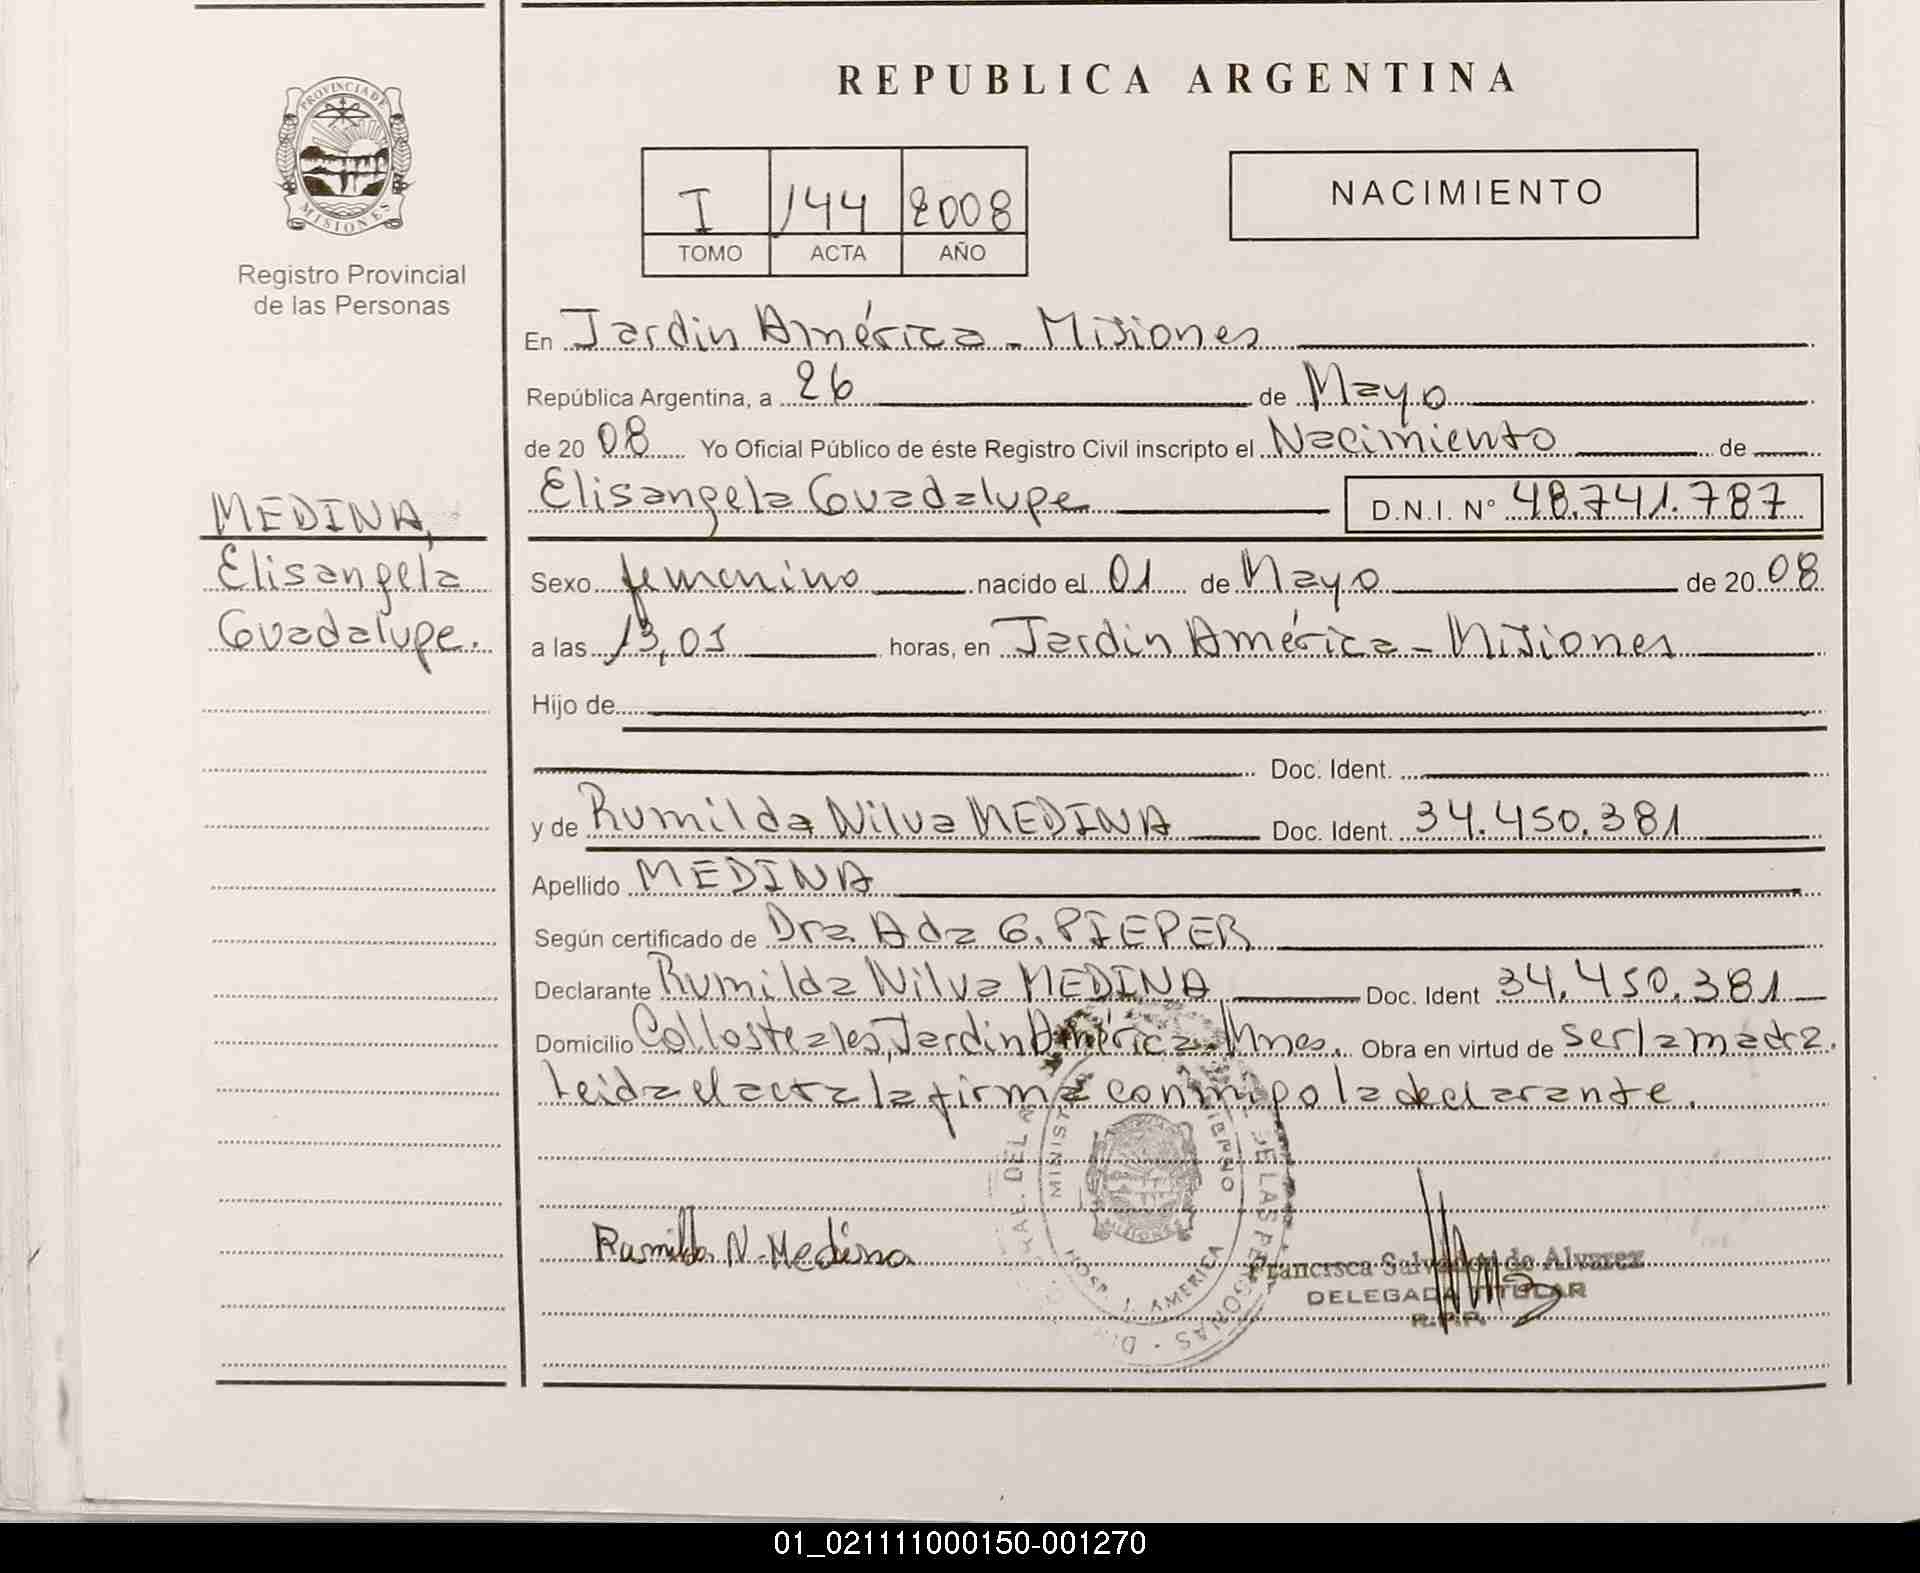 REPUBLICA ARGENTINA
PROVINCIA DE
MISIONES
Registro Provincial
de las Personas
I 144 2008
TOMO ACTA AÑO
NACIMIENTO
En Jardin América - Misiones
República Argentina, a 26 de Mayo
de 2008 Yo Oficial Público de éste Registro Civil inscripto el Nacimiento de
Elisangela Guadalupe D.N.I. N° 48.741.787
MEDINA,
Elisangela
Guadalupe.
Sexo femenino nacido el 01 de Mayo de 2008
a las 13,05 horas, en Jardin América - Misiones
Hijo de
Doc. Ident.
y de Rumilda Nilva MEDINA Doc. Ident. 34.450.381
Apellido MEDINA
Según certificado de Dra. Ada G. PIEPER
Declarante Rumilda Nilva MEDINA Doc. Ident 34.450.381
Domicilio Jardin América - Mnes. Obra en virtud de ser la madre.
Leida el acta la firma conmigo la declarante.
MISIONES
HOSP. J. AMERICA
DE LAS PERSONAS
Rumilda N. Medina
Francisca Salvador de Alvarez
DELEGADA TITULAR
R.P.P.
01_021111000150-001270